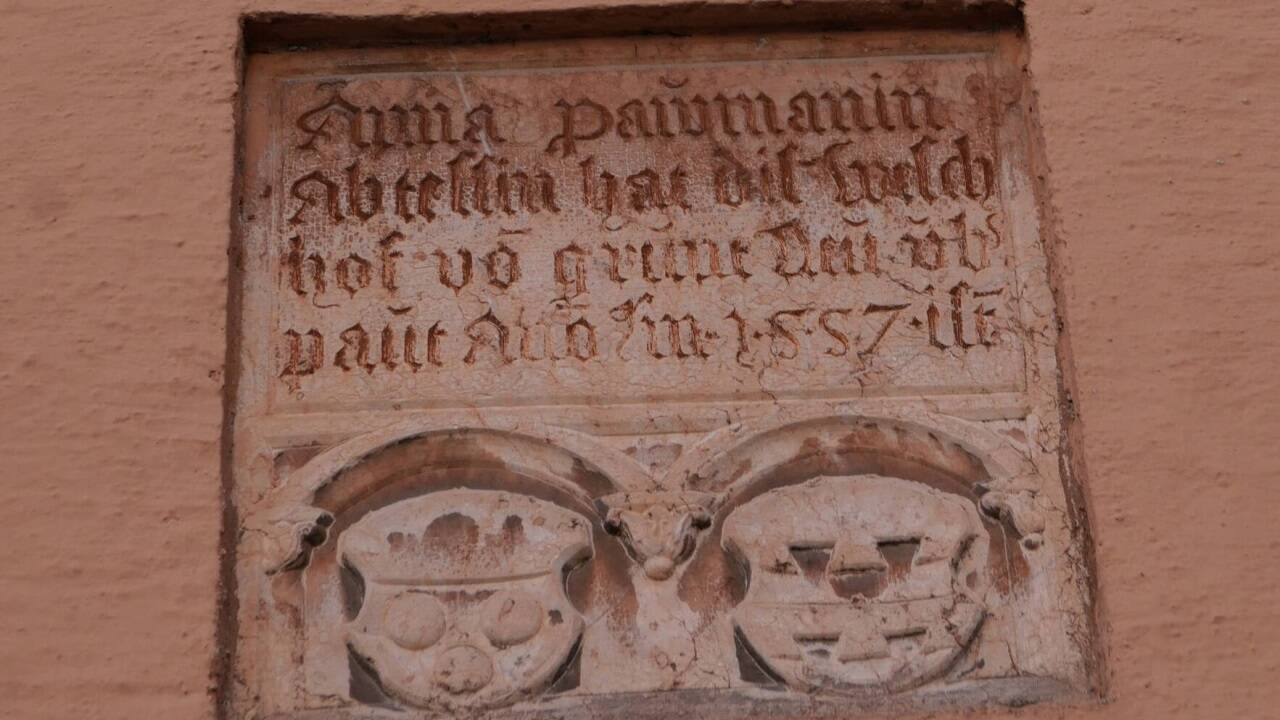 Anna paŭmanin
Abtessin hat diſ Welſch
hof võ grunt Neŭ
paŭt Año 1557 iſt